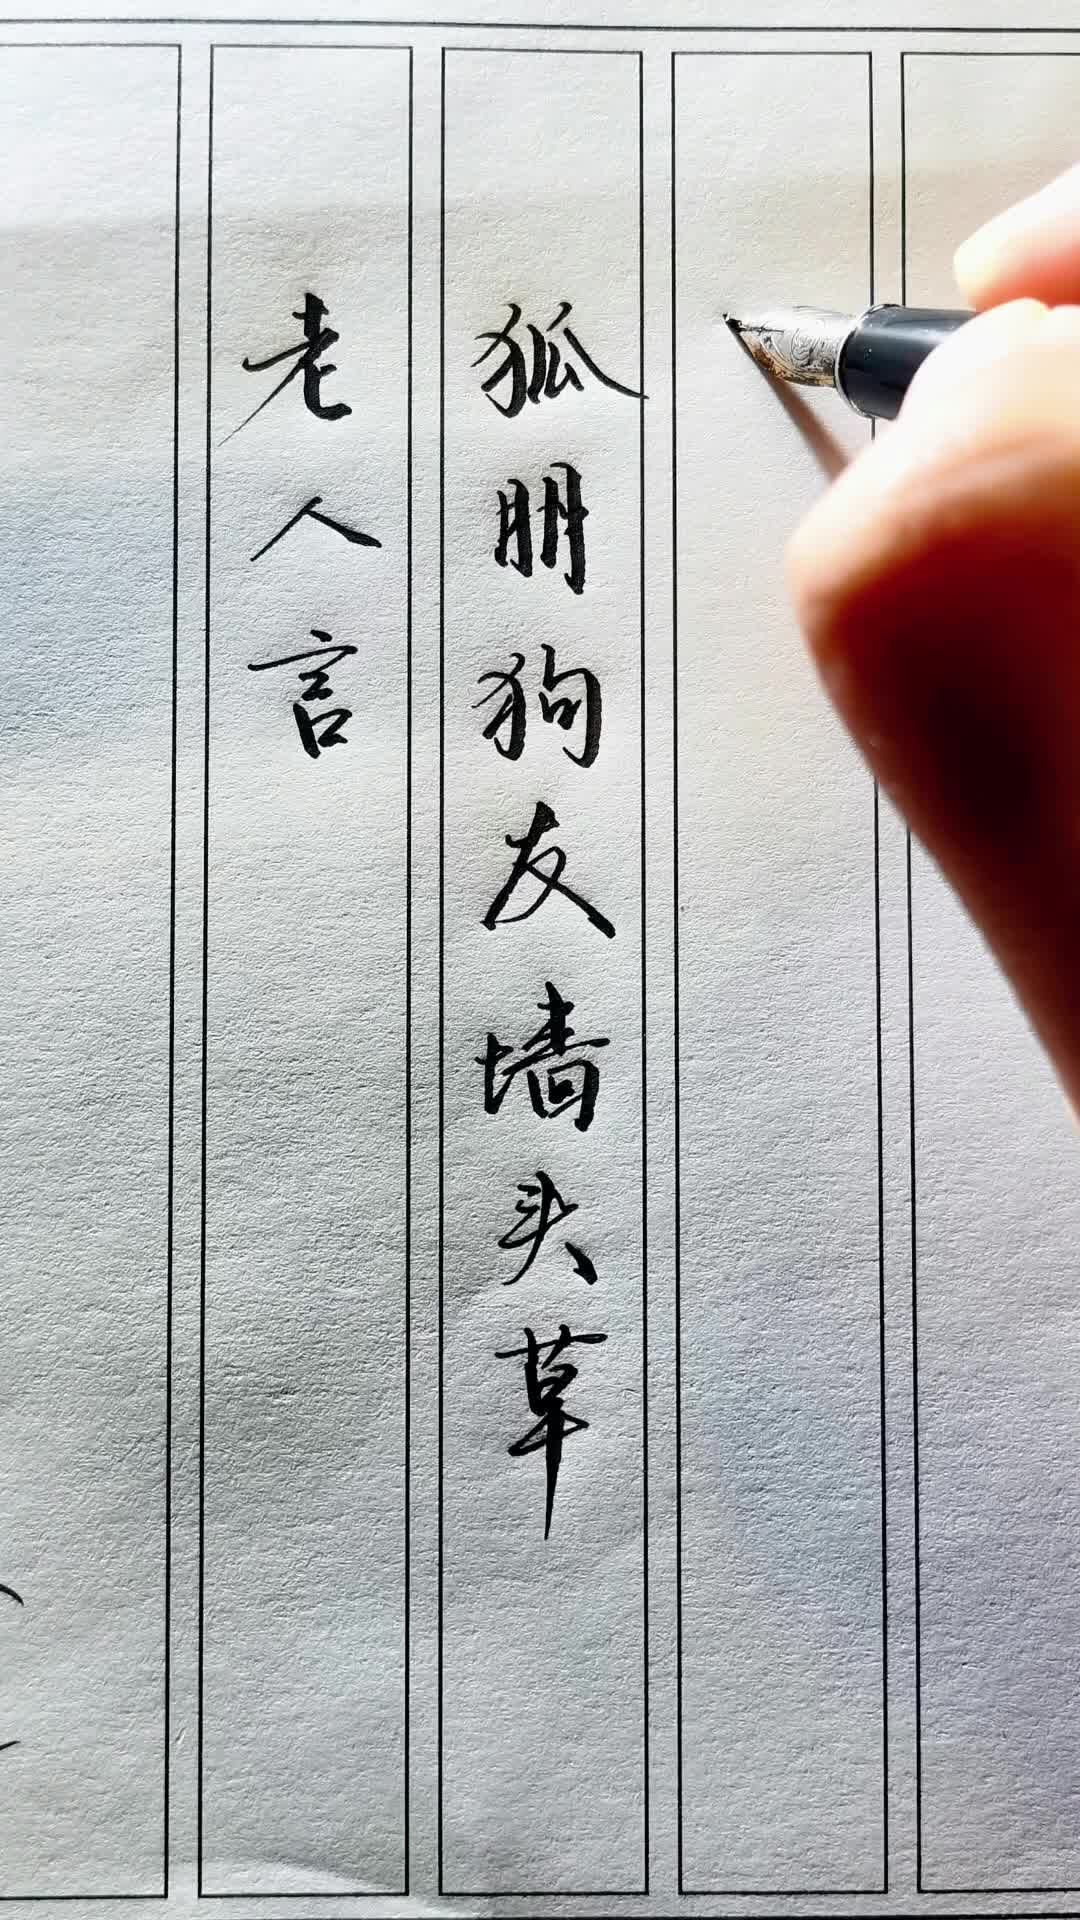 老人言
狐朋狗友墙头草